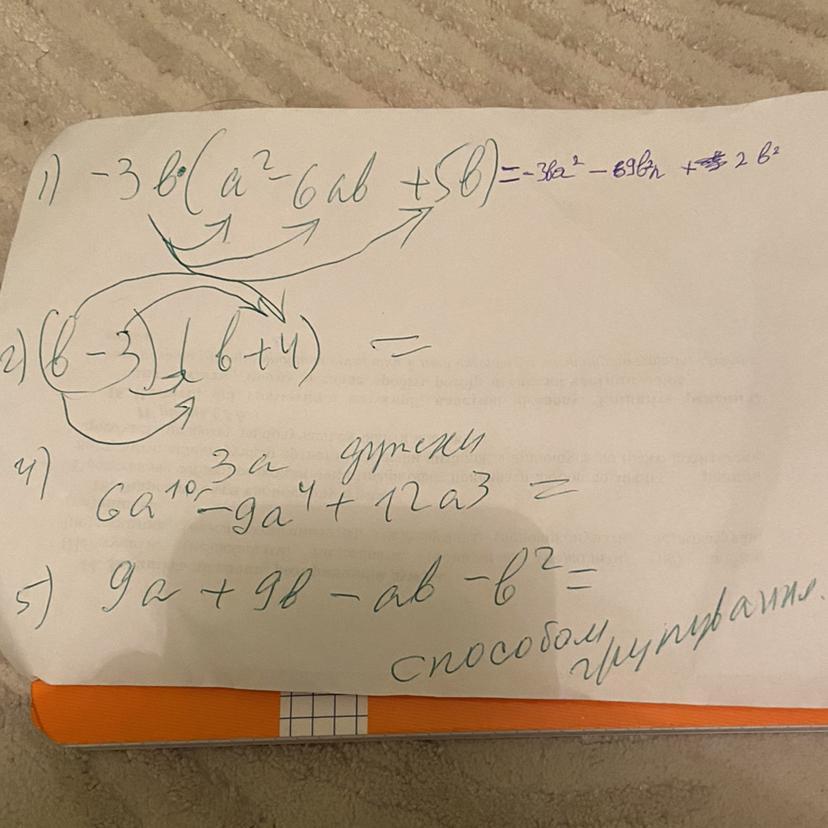 1) -3в·(a²-6aв +5в) = -3вa² - 69в²a + 2в²
2) (в-3)(в+4) =
4) За дужки
6a¹⁰-9a⁴+12a3 =
5) 9a+9в-aв-в²=
способом
групування.